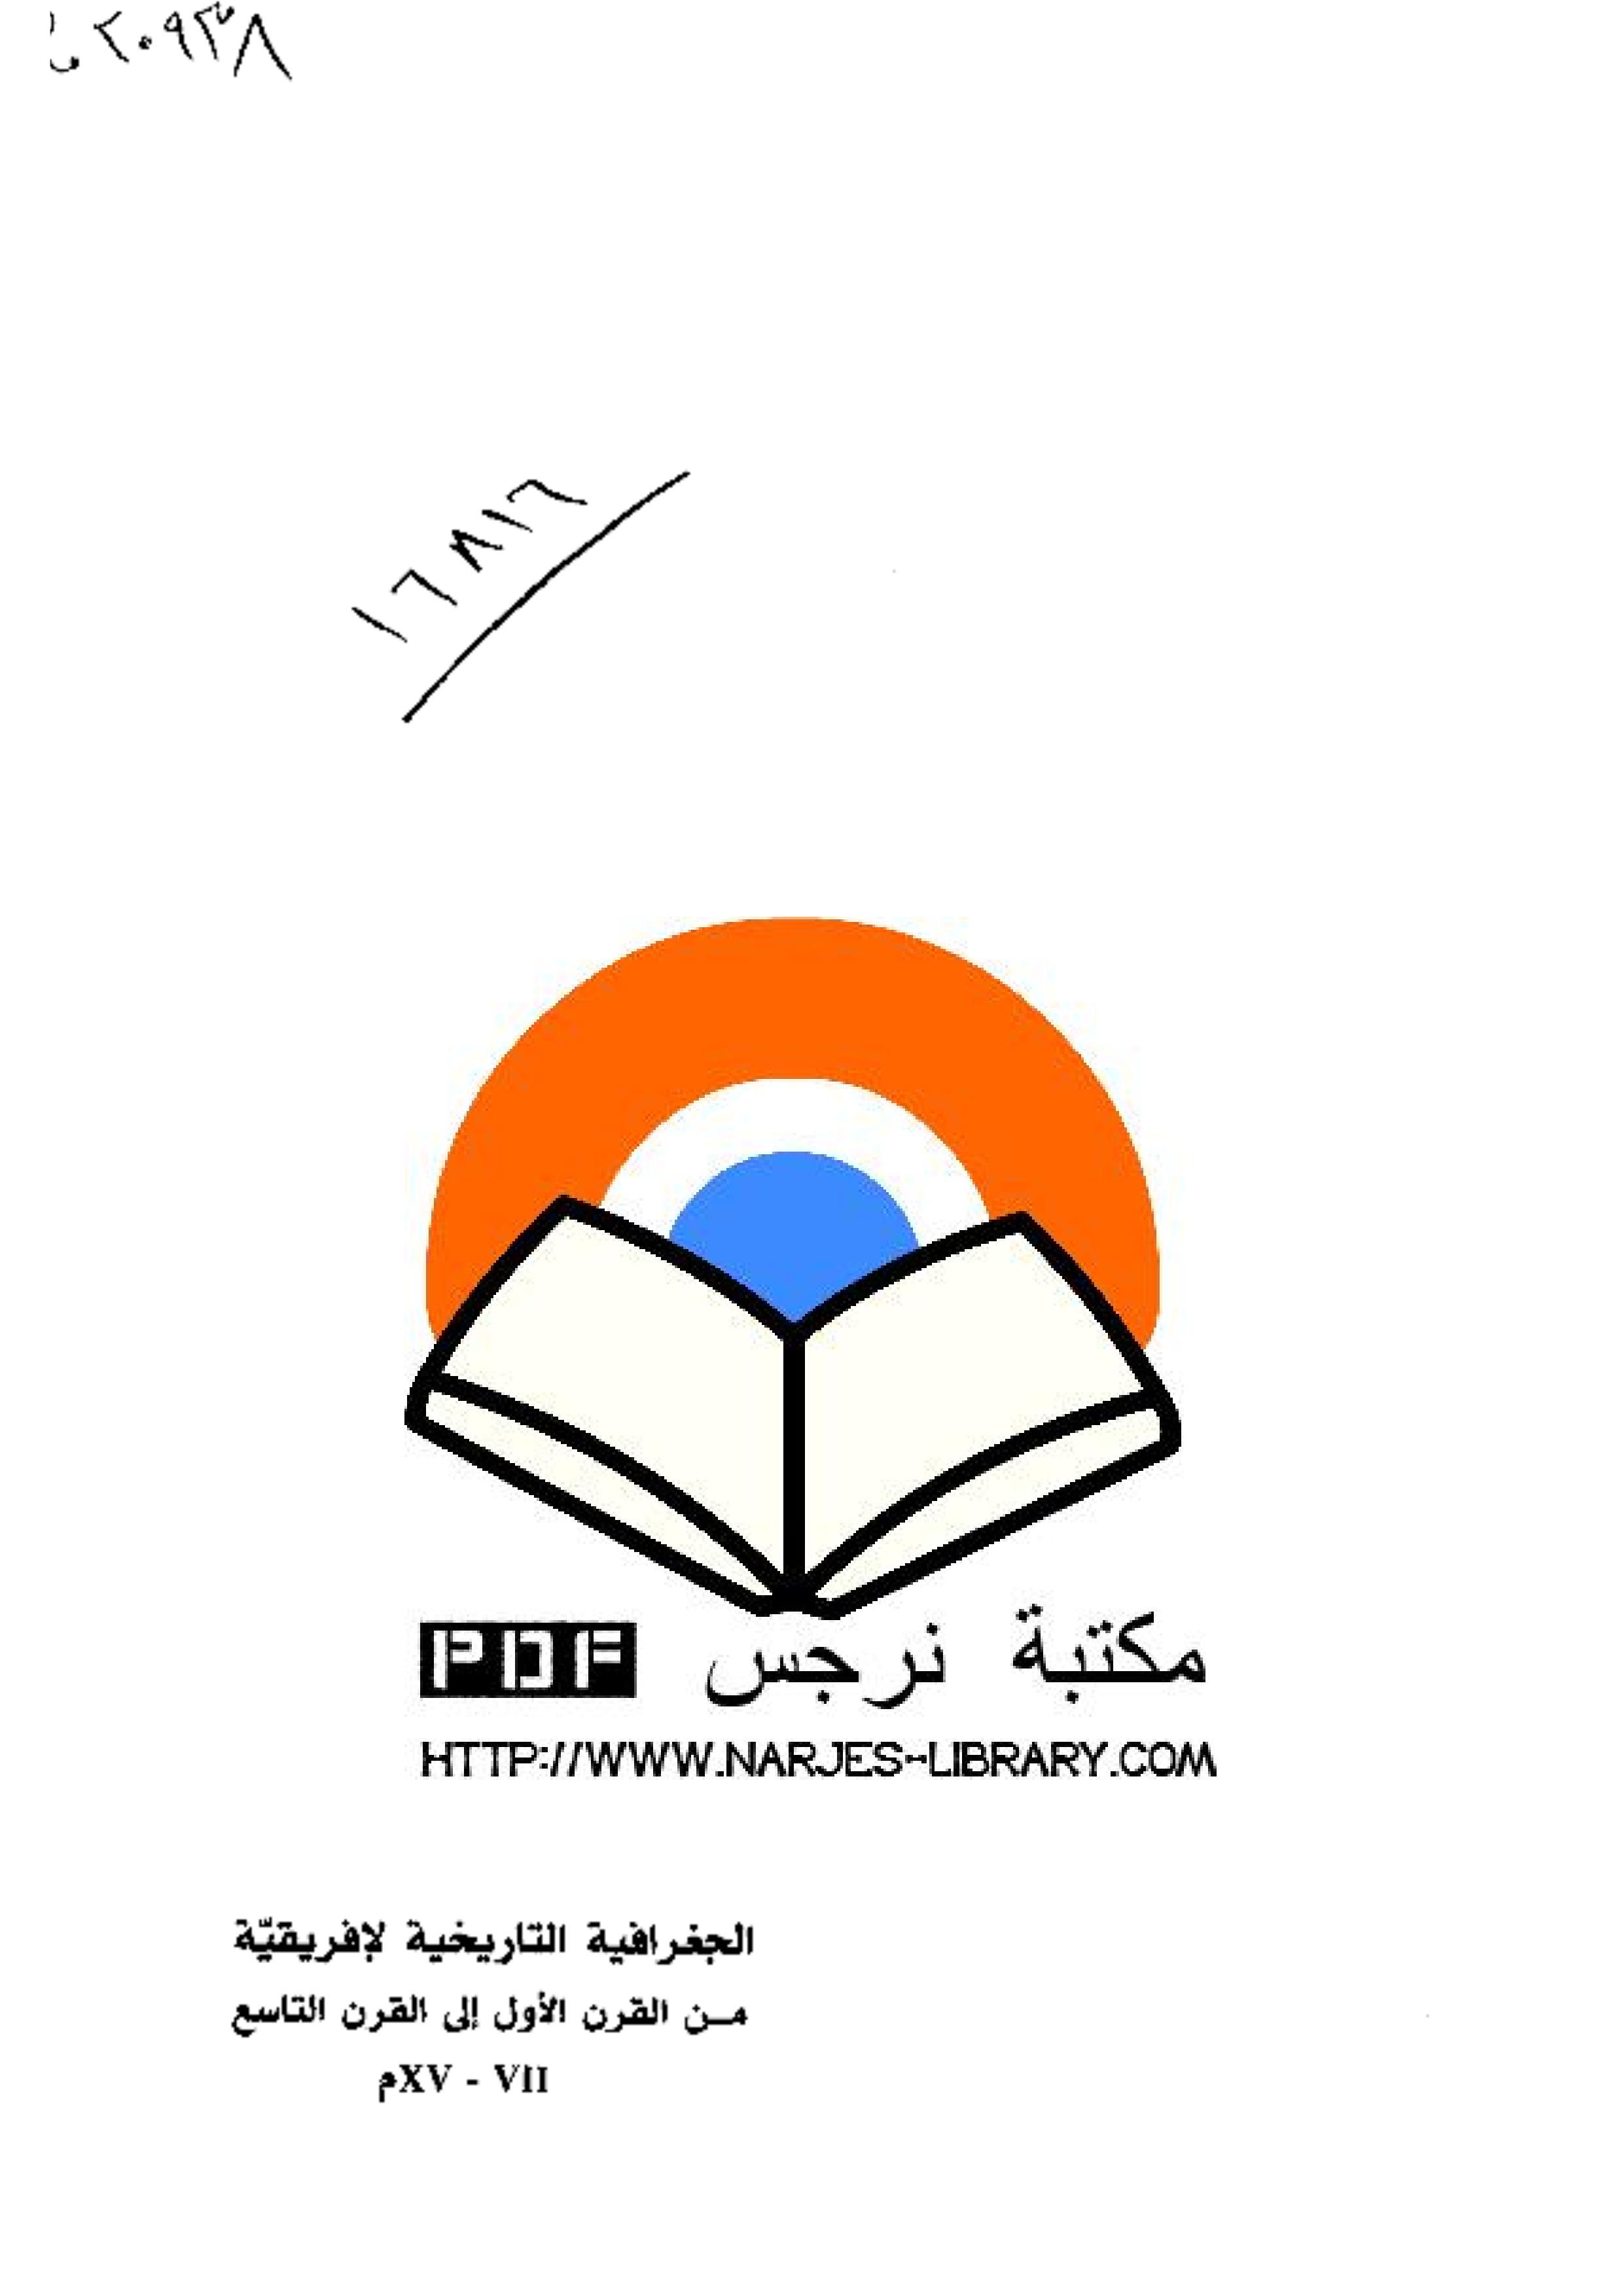 ٢٠٩٣٨
١٦٨١٦
مكتبة نرجس PDF
HTTP://WWW.NARJES-LIBRARY.COM
الجغرافية التاريخية لإفريقيّة
مـن القرن الأول إلى القرن التاسع
XV - VIIم